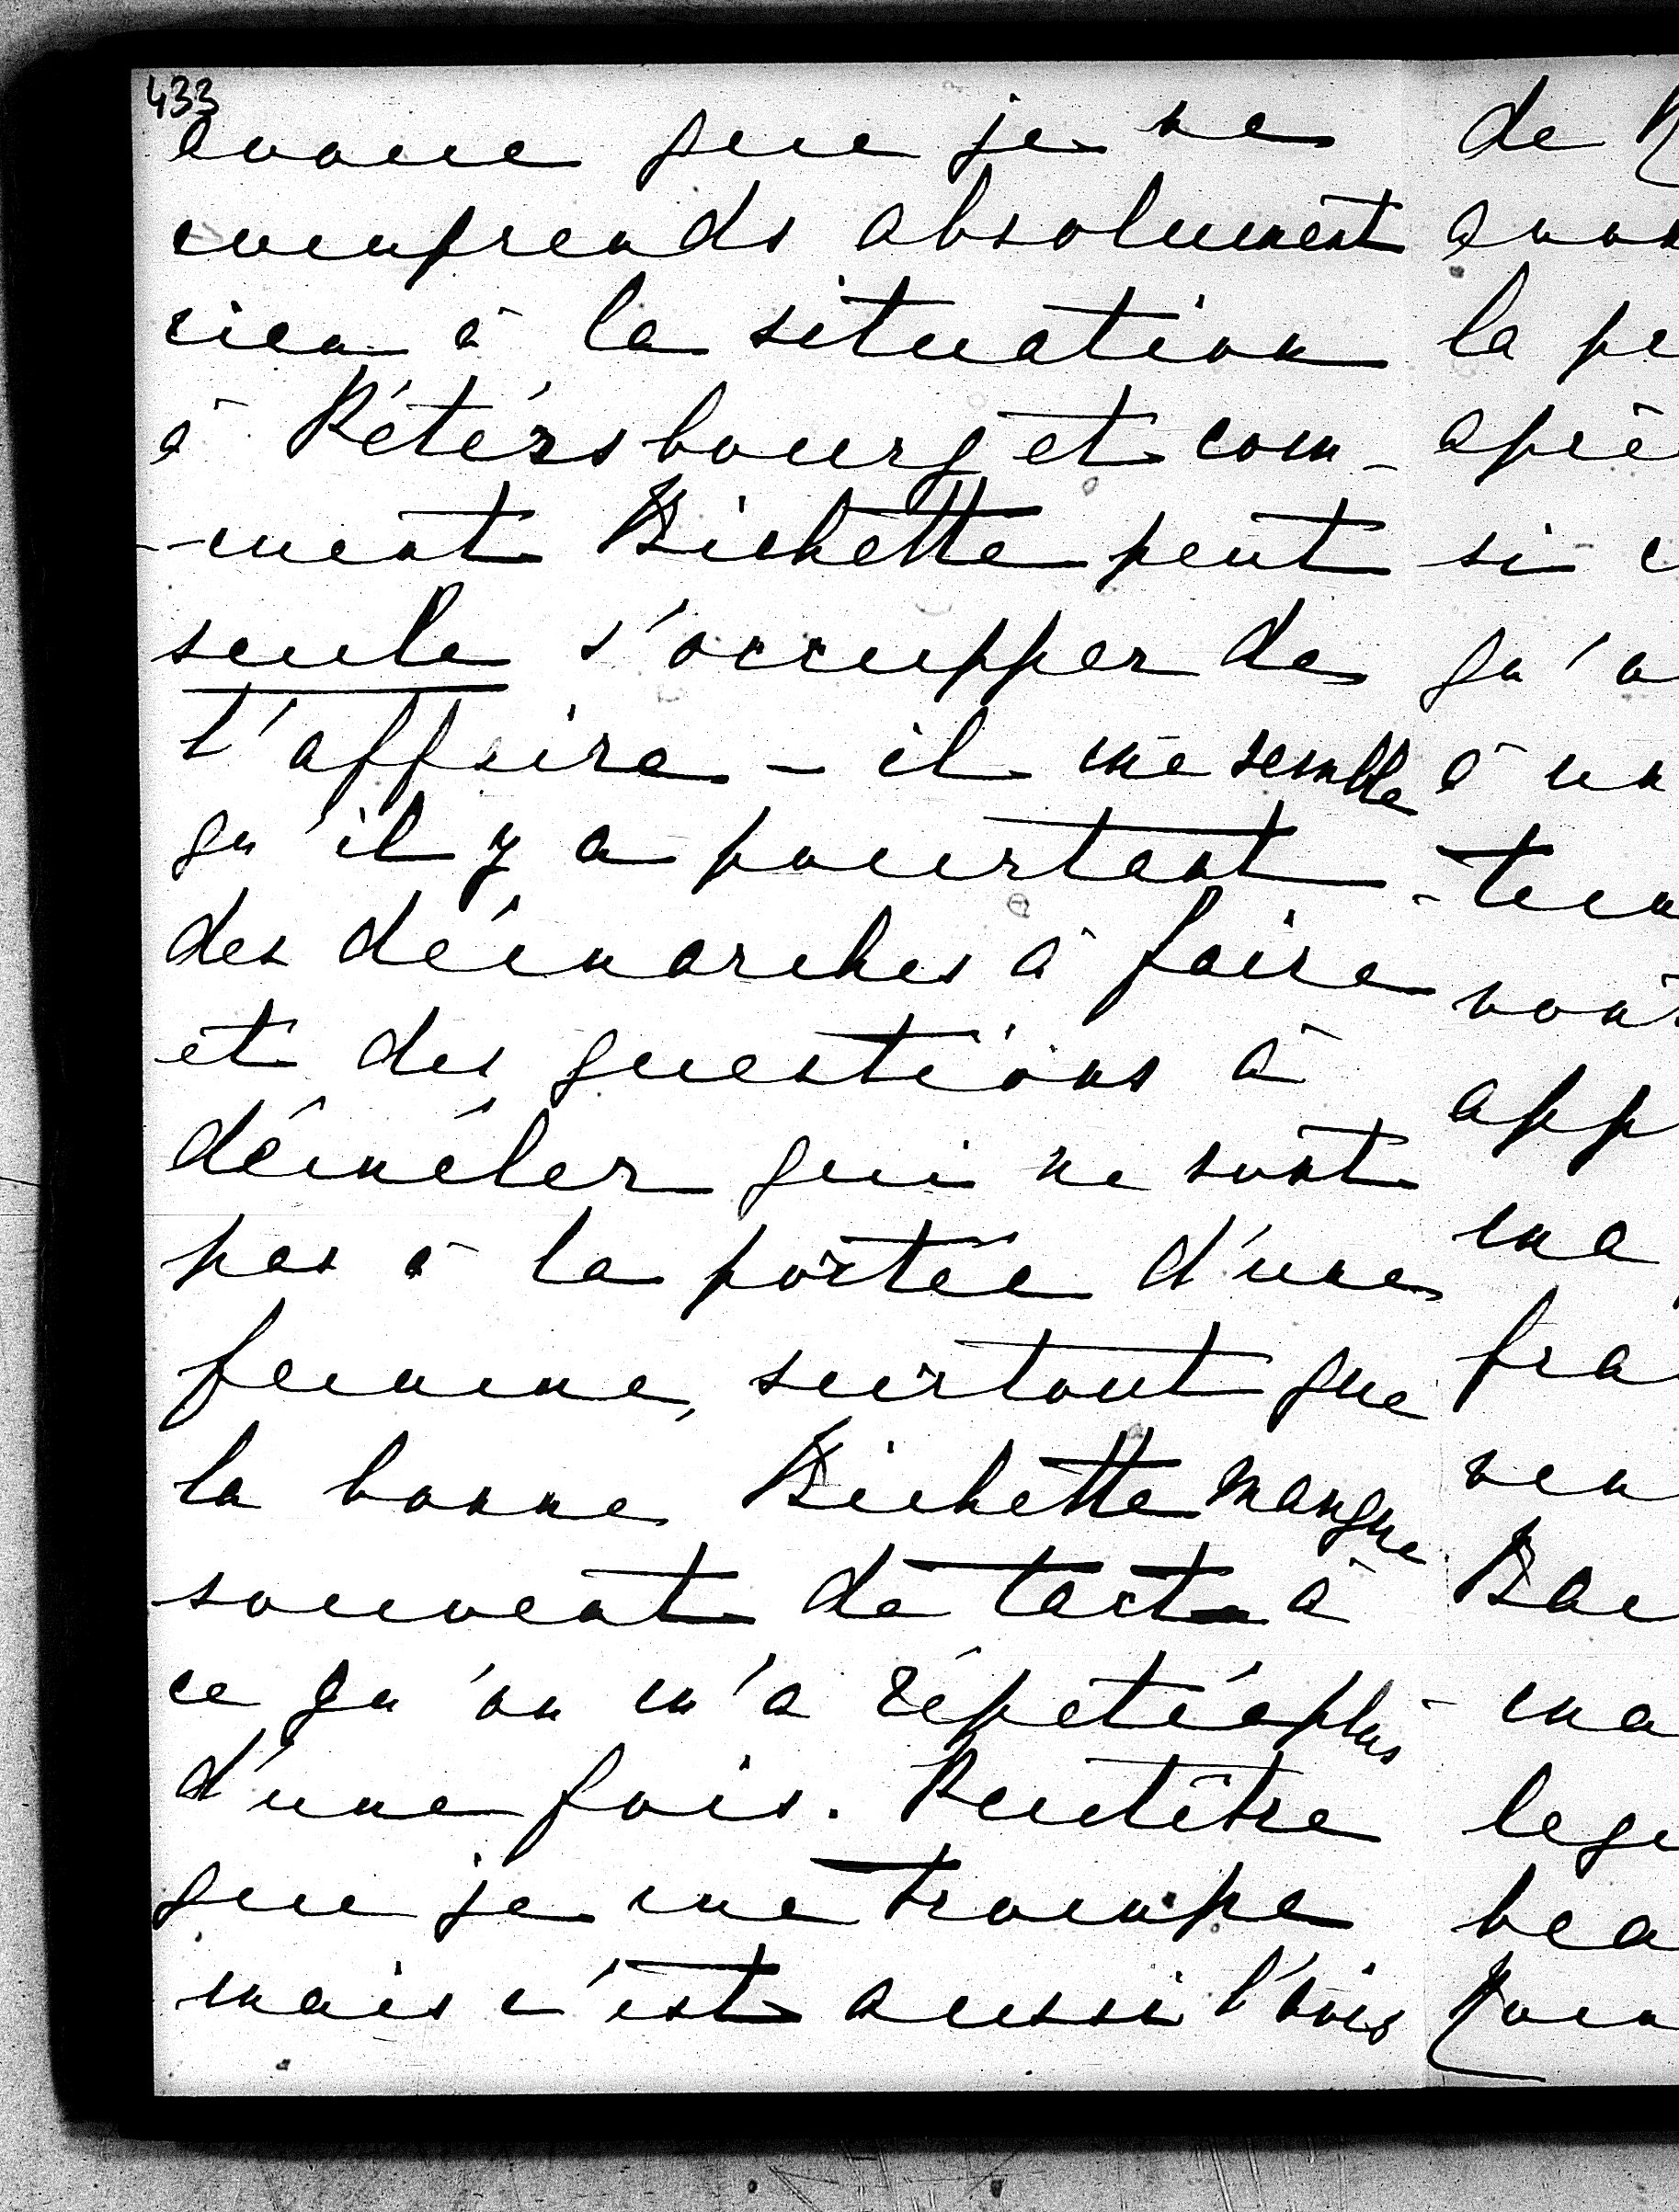 433
avoue que je ne
comprends absolument
rien à la situation
à Pétérsbourg et com-
-ment Bichette peut
seule s'occupper de
l'affaire - il me semble
qu'il y a pourtant
des démarches à faire
et des questions à
déméler qui ne sont
pas à la portée d'une
femme, surtout que
la bonne Bichette manque
souvent de tact à
ce qu'on m'a répeté plus
d'une fois. Peutêtre
que je me trompe
mais c'est aussi l'avis
de
la pe
aprè
si c
qu'a
à un
-tem
app
ma
fra
ven
Bar
- ma
bea